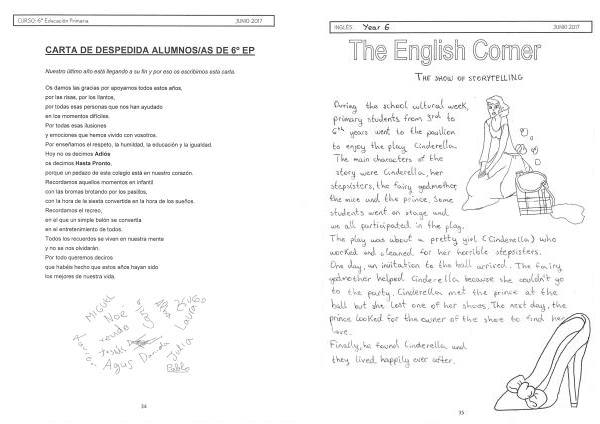 CURSO: 6º Educación Primaria JUNIO 2017
CARTA DE DESPEDIDA ALUMNOS/AS DE 6º EP
Nuestro último año está llegando a su fin y por eso os escribimos esta carta.
Os damos las gracias por apoyarnos todos estos años,
por las risas, por los llantos,
por todas esas personas que nos han ayudado
en los momentos difíciles.
Por todas esas ilusiones
y emociones que hemos vivido con vosotros.
Por enseñarnos el respeto, la humildad, la educación y la igualdad.
Hoy no os decimos Adiós
os decimos Hasta Pronto,
porque un pedazo de este colegio está en nuestro corazón.
Recordamos aquellos momentos en infantil
con las bromas brotando por los pasillos,
con la hora de la siesta convertida en la hora de los sueños.
Recordamos el recreo,
en el que un simple balón se convertía
en el entretenimiento de todos.
Todos los recuerdos se viven en nuestra mente
y no se nos olvidarán.
Por todo queremos deciros
que habéis hecho que estos años hayan sido
los mejores de nuestra vida.
MIGUEL
Noe
Alba
Hugo
Laura
Agus
Daniela
Julia
Pablo
34
INGLÉS Year 6 JUNIO 2017
The English Corner
THE SHOW OF STORYTELLING
During the school cultural week,
primary students from 3rd to
6th years went to the pavilion
to enjoy the play Cinderella.
The main characters of the
story were Cinderella, her
stepsisters, the fairy godmother,
the mice and the prince. Some
students went on stage and
we all participated in the play.
The play was about a pretty girl (Cinderella) who
worked and cleaned for her horrible stepsisters.
One day, an invitation to the ball arrived. The fairy
godmother helped Cinderella because she couldn't go
to the party. Cinderella met the prince at the
ball but she lost one of her shoes. The next day, the
prince looked for the owner of the shoe to find her
love.
Finally, he found Cinderella and
they lived happily ever after.
35